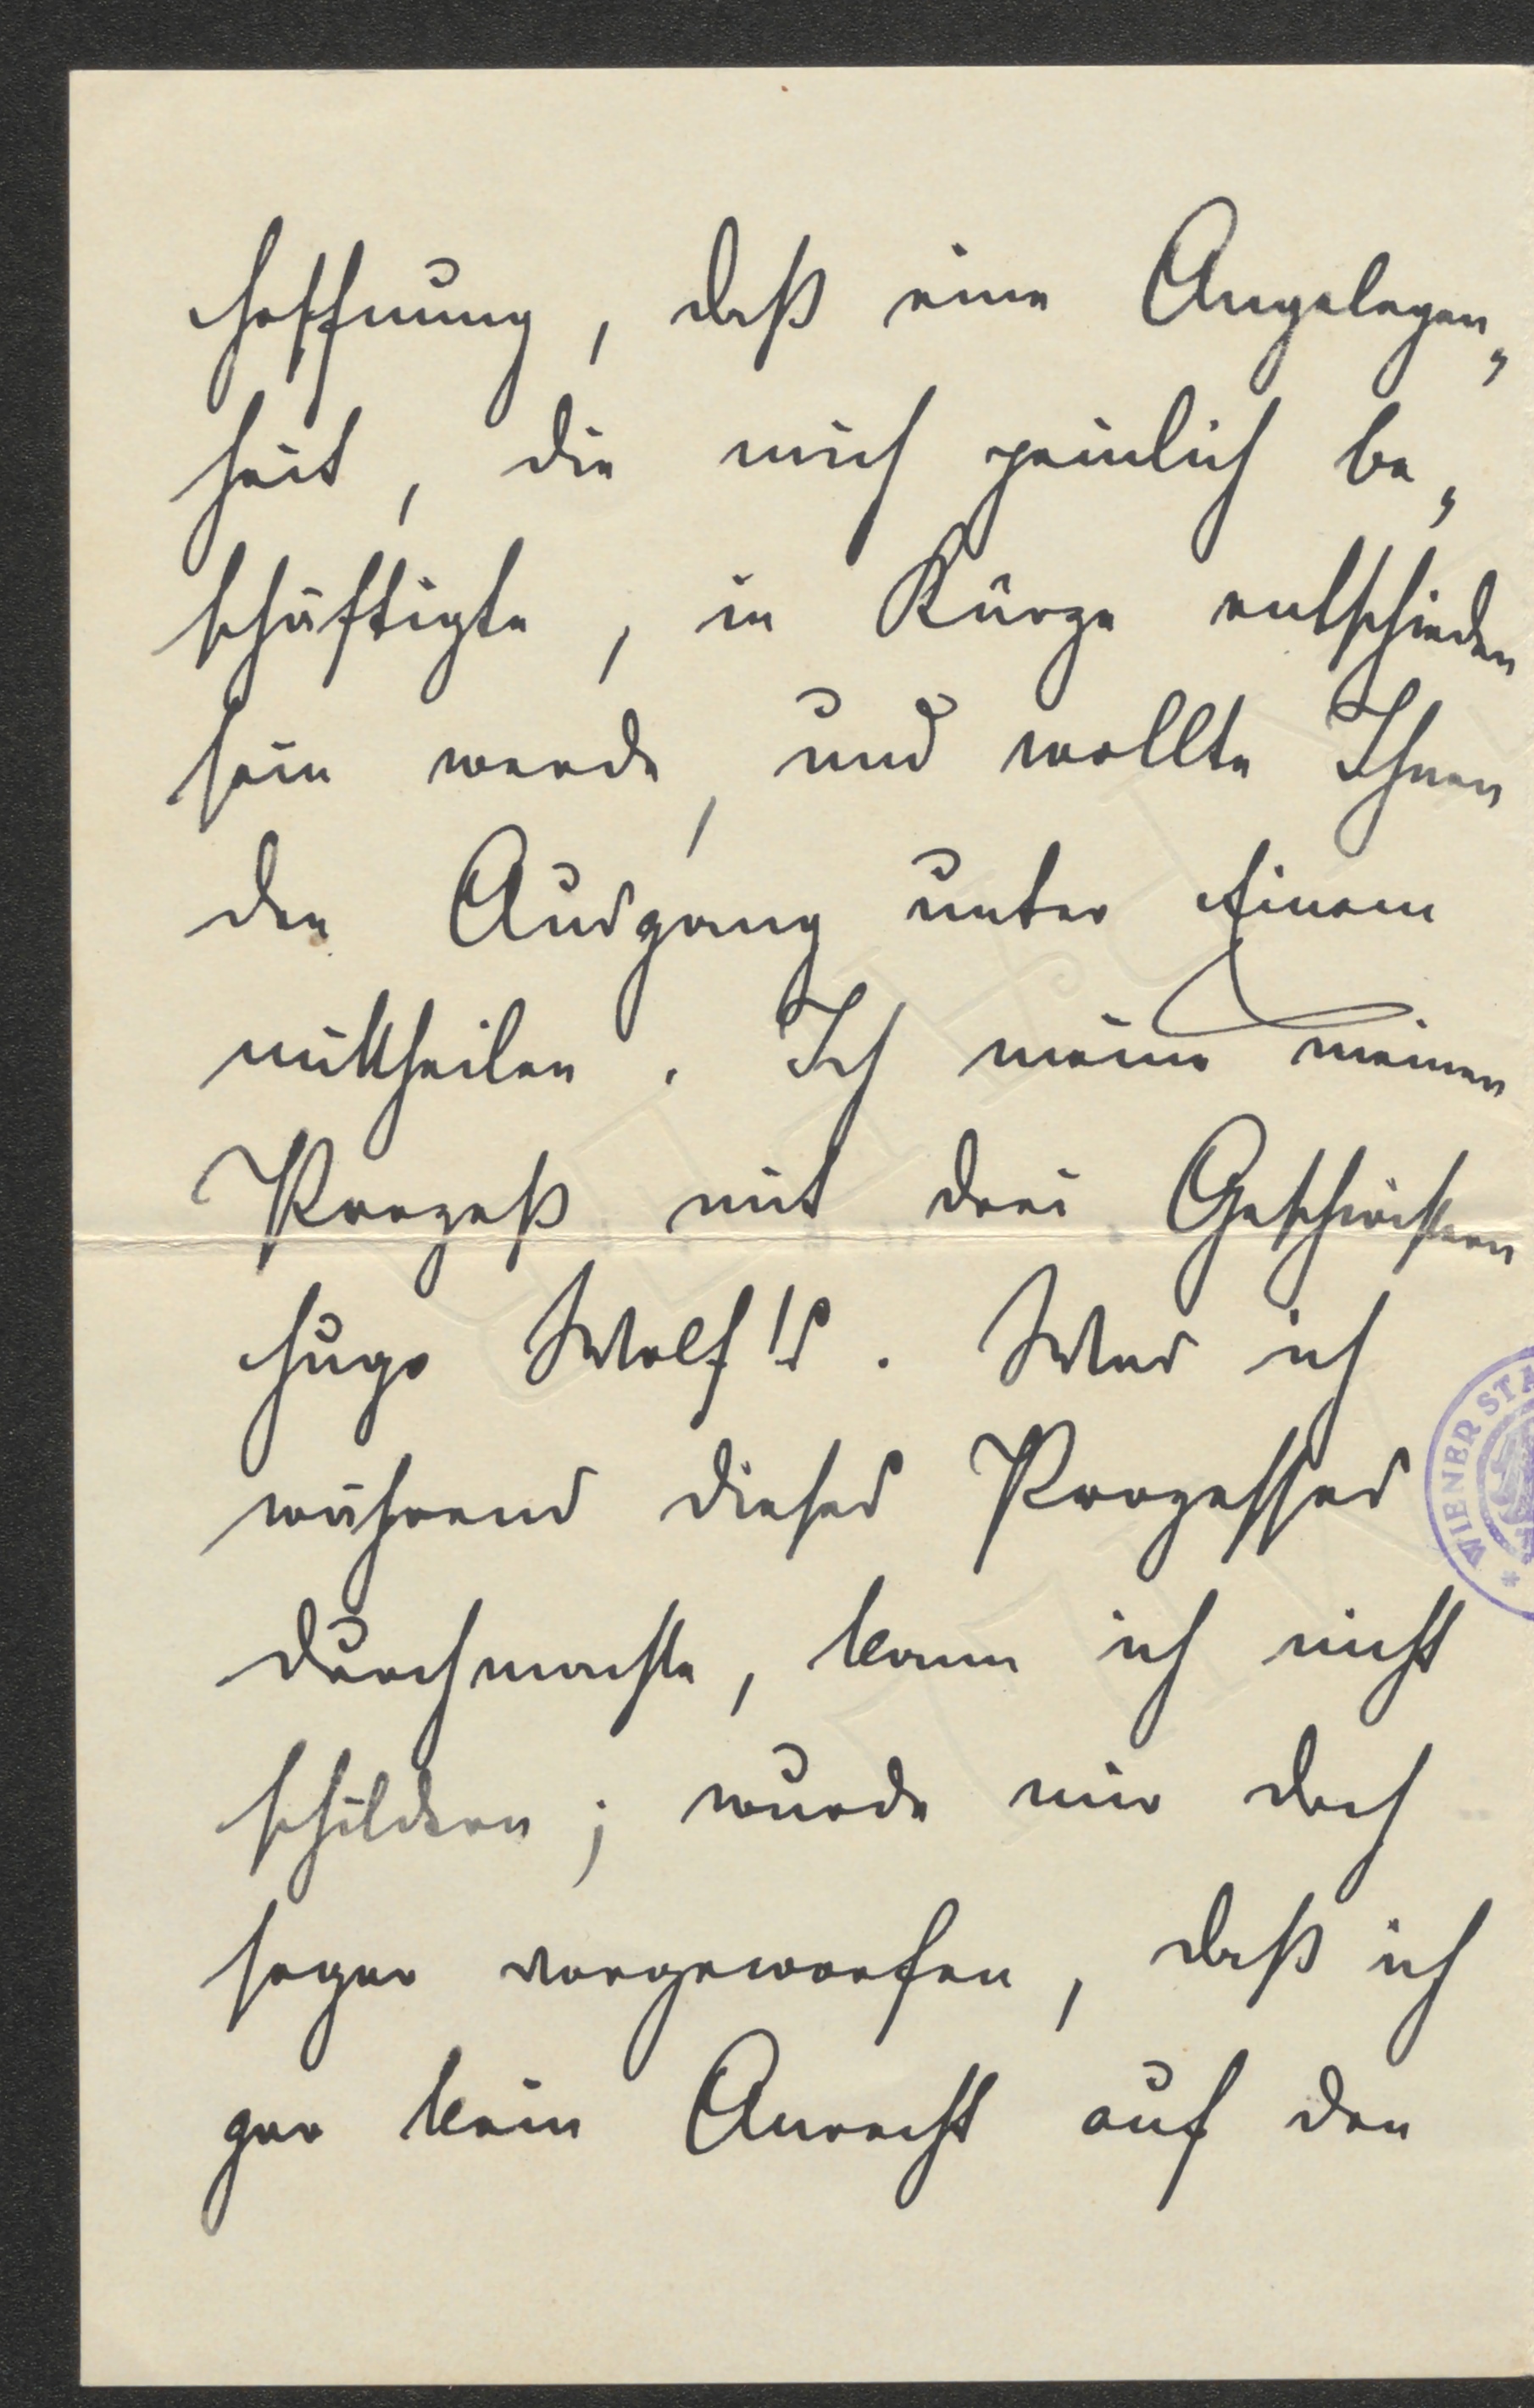 Hoffnung, daß eine Angelegen„
heit, die mich peinlich be„
schäftigte, in Kürze entschieden
sein werde, und wollte Ihnen
den Ausgang unter Einem
mittheilen. Ich meine meinen
Prozeß mit drei Geschwistern
Hugo Wolf's. Was ich
während dieses Prozesses
WIENER STA
durchmachte, kann ich nicht
schildern; wurde mir doch
sogar vorgeworfen, daß ich
gar kein Anrecht auf den